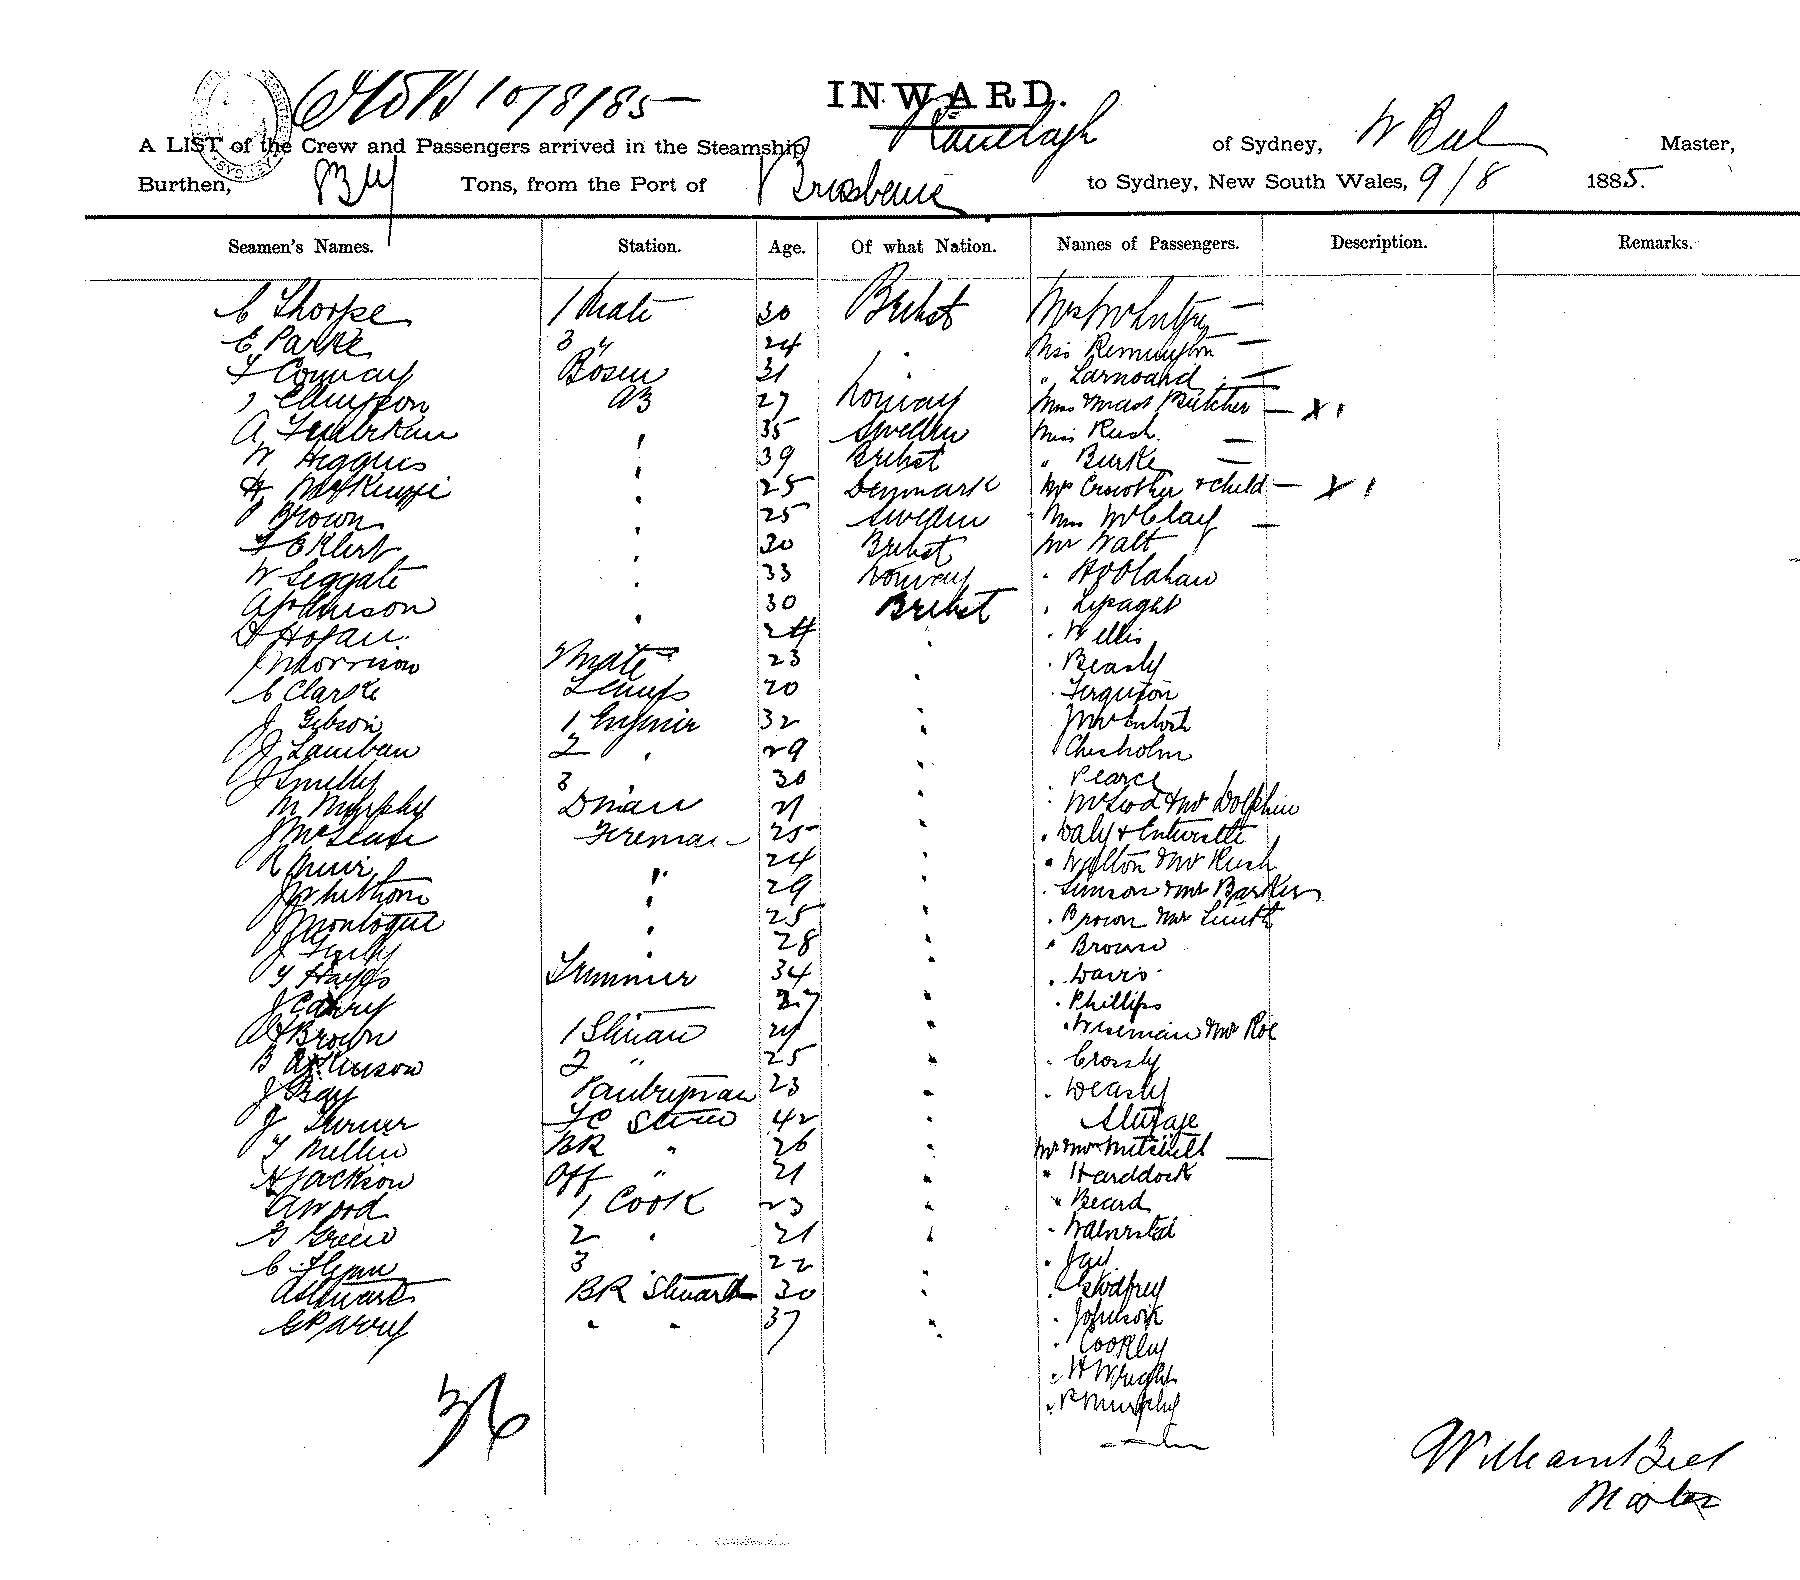 10/8/85
INWARD.
A LIST of the Crew and Passengers arrived in the Steamship Ranelagh of Sydney, W Beel Master,
Burthen, Tons, from the Port of Brisbane to Sydney, New South Wales, 9/8 1885.
Seamen's Names. Station. Age. Of what Nation. Names of Passengers. Description. Remarks.
C Thorpe 1 Mate 30 British Mrs
E Parke 3 " 24 Miss Remington —
T Conway Bosen 31 " —
AB 27 Norway Mrs & Mast Butcher — X 1
A 35 Sweden Miss Rush —
W Higgins 39 British " Burke —
H McKenzie 25 Denmark Mrs Crowther & Child — X 1
P Brown 25 Sweden Miss McClay —
F Eklert 30 British Mr Walt
W Leggate 33 Norway
A 30 British
D Hogan 24 Wellis
J Morrison 2 Mate 23 Beasly
C Clarke Lamps 20 Ferguson
J Gibson 1 Enginir 32 J McIntosh
J Lamban 2 29 Chesholm
J Smelly 3 30 Pearce
M Murphy Dman 21 McLeod & Mr Dolphin
Fireman 25 Daly & Entwistle
R Muir 24 Walton & Mr Rush
J Whithorn 29 Simson & Mr Barker
J Montague 25 Brown Mr Smith
28 Brown
T Hayes Trimmer 34 Davis
J Carry 27 Phillips
A Brown 1 Stuard 24 Wiseman & Mr Roe
B Atkinson 2 " 25 Crossly
J Bray Pantryman 23 Weasly
J Turner FC Stuard 42
T Mellin BR " 26 Mr & Mrs Mitchell —
H Jackson Off " 21 " Harddock
A Wood 1 Cook 23 " Beard
G Green 2 21
C Flynn 3 22 Jay
A Stewart BR Stuard 30 Godfrey
G Parry 37 Johnson
Cookley
H Wright
P Murphy
36
William Beel
Master